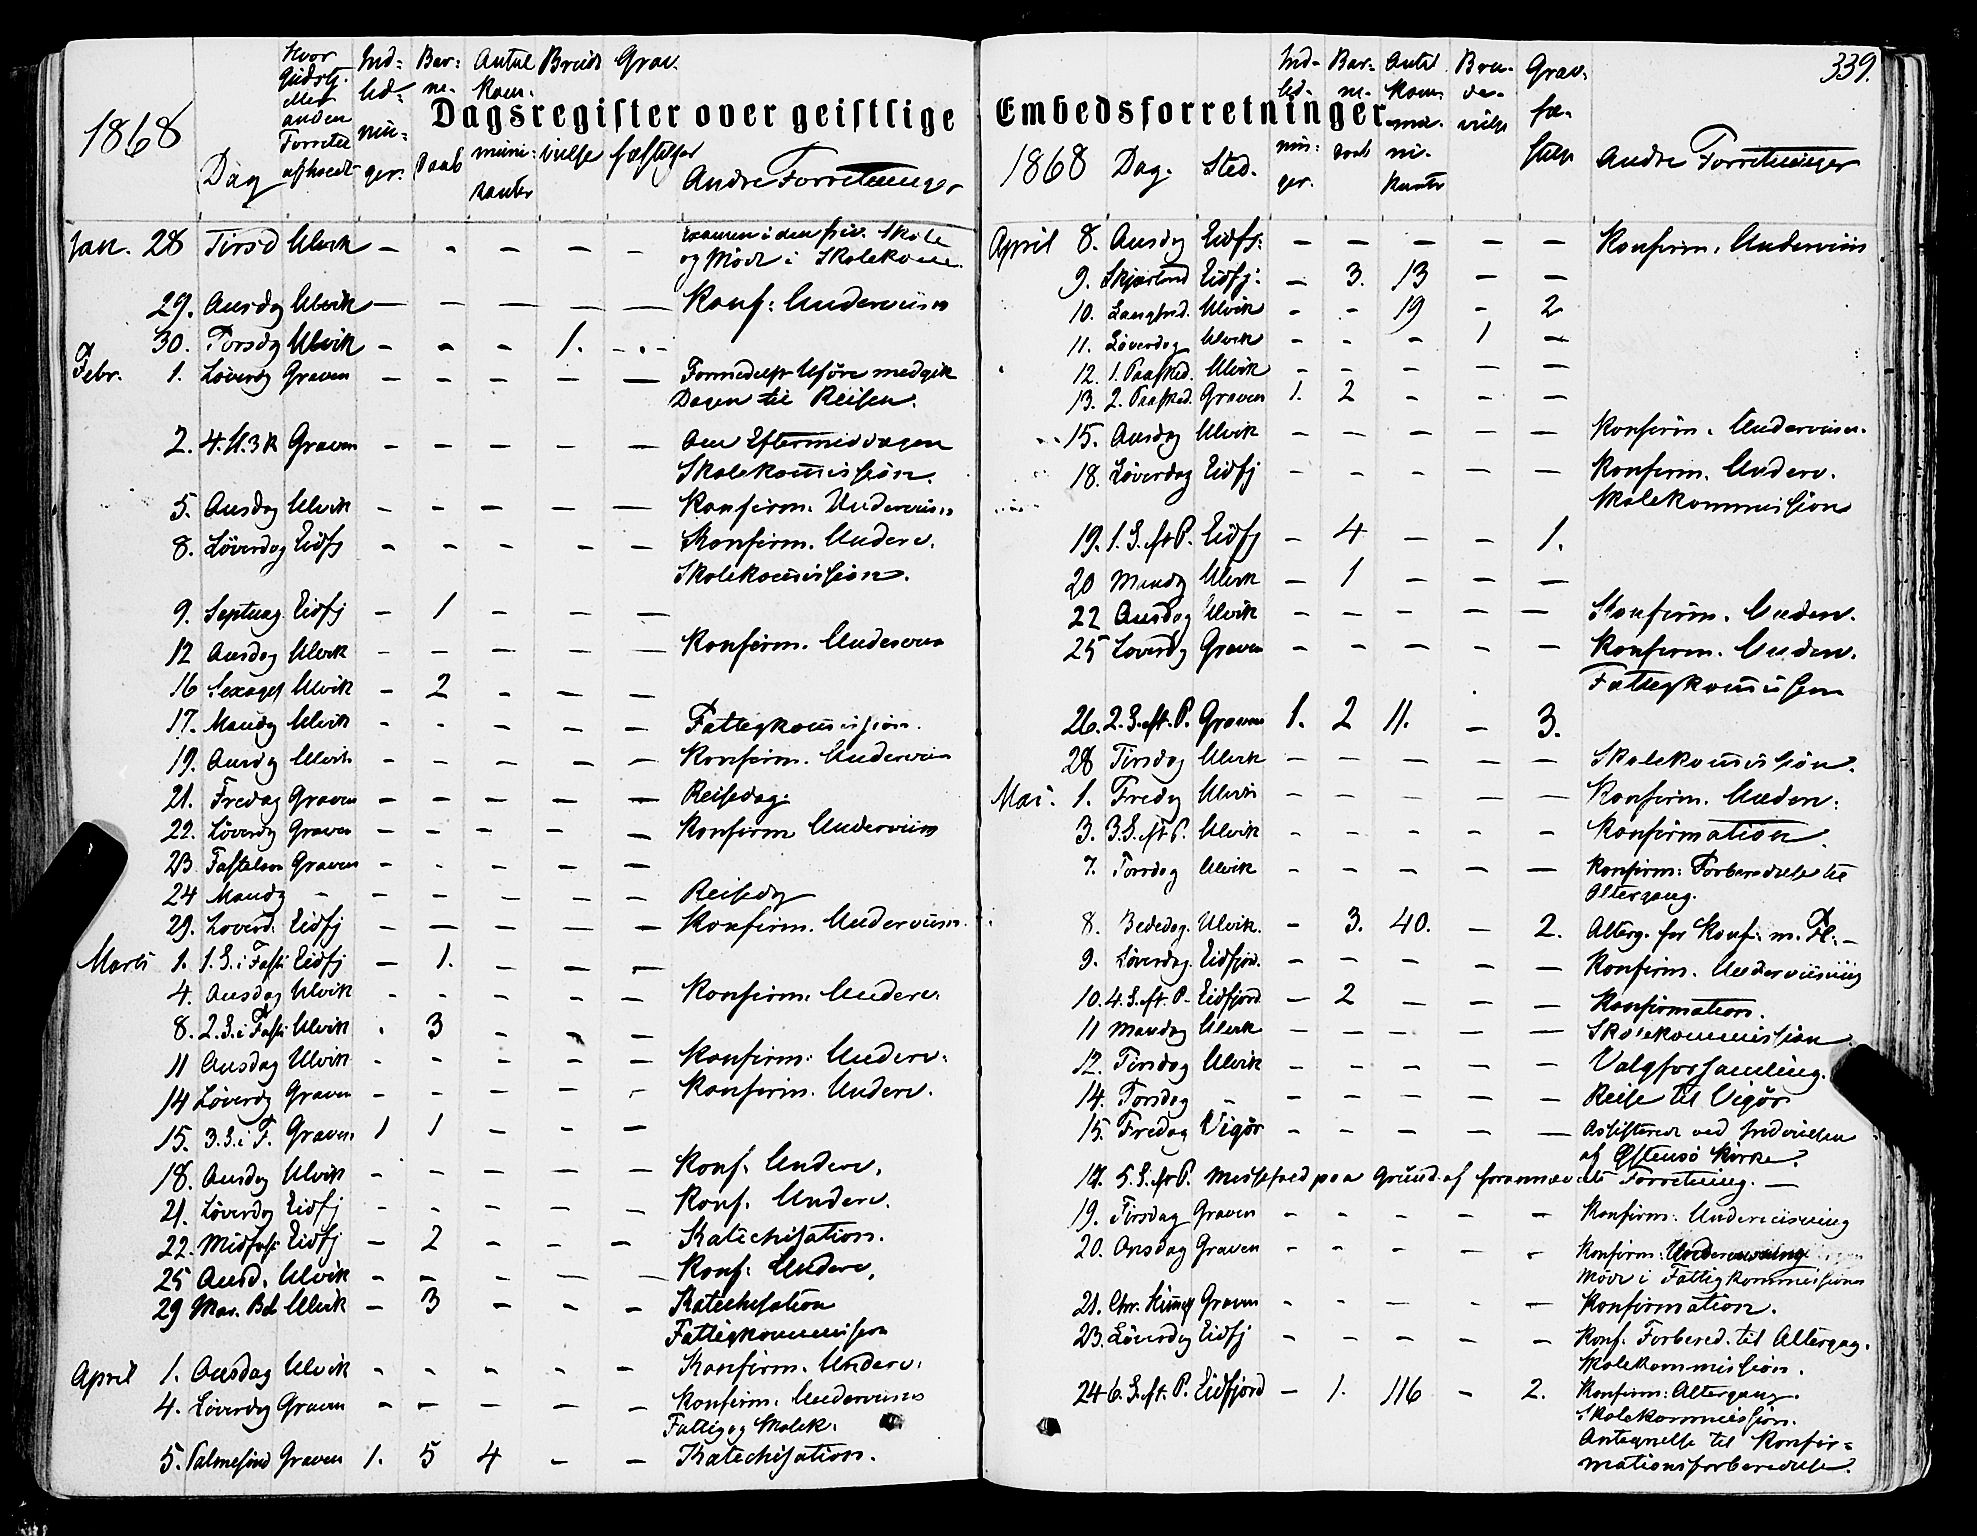 339.
Dagsregister over geistlige Embedsforretninger
1868 Dag Hvor Gudstj. eller anden Forretn. afholdt Ind-led-nin-ger. Bar-ne-daab Antal kom-muni-kanter Brude vielse Grav. fæstelser Andre Forretninger
Jan. 28 Tirsd Ulvik – – – – – Examen i den priv. Skole
og Møde i Skolekom.
29. Onsdag Ulvik – – – – – Konf: Underviisn
30. Torsdg Ulvik – – – 1. –
Febr. 1. Løverdg Graven – – – – – Formedelst Uføre medgik
Dagen til Reisen.
2. 4. S. 3 K Graven – – – – – Om Eftermiddagen
Skolekommission.
5. Onsdag Ulvik – – – – – Konfirm. Underviisn
8. Løverdag Eidfj – – – – – Konfirm. Underv.
Skolekommission.
9. Septuag. Eidfj – 1 – – –
12 Onsdag Ulvik – – – – – Konfirm. Underviis
16 Sexages Ulvik – 2 – – –
17. Mandg Ulvik – – – – – Fattigkommission.
19. Onsdg Ulvik – – – – – Konfirm. Underviis
21. Fredag Graven – – – – – Reisedag.
22. Løverdg Graven – – – – – Konfirm Underviisn
23. Fastelavn Graven – – – – –
24 Mandg – – – – – – Reisedg
29. Loverd. Eidfj – – – – – Konfirm. Underviisn.
Marts 1. 1. S. i Faste Eidfj – 1. – – –
4. Onsdag Ulvik – – – – – Konfirm. Underv.
8. 2. S. i Faste Ulvik . 3 – – –
11 Onsdag Ulvik – – – – – Konfirm: Underv:
14 Løverdg Graven – – – – – Konfirm. Underv.
15. 3. S. i F. Graven 1 1 – – –
18. Onsdag Ulvik – – – – – Konf. Underv.
21. Løverdag Eidfj – – – – – Konf. Underv.
22. Midfaste Eidfj – 2 – – – Katechisation.
25 Onsd. Ulvik – – – – – Konf. Underv.
29 Mar. Bd Ulvik – 3 – – – Katechisation
Fattigkommission
April 1. Onsdag Ulvik – – – – – Konfirm. Underv.
4. Løverdg Graven – – – – – Konfirm. Underviisn
Fattig og Skolek.
5. Palmesønd Graven 1. 5 4 – – Katechisation.
1868 Dag. Sted. Ind-led-nin-ger. Bar-ne-daab Antal kom-mu-ni-kanter Bru-de-vielse Grav-fæ-stelse Andre Forretninger
April 8. Onsdag Eidfj: – – – – – Konfirm. Underviisn
9. Skjærtorsd Eidfj: – 3. 13 – –
10. Langfred. Ulvik – – 19 – 2
11. Løverdag Ulvik – – – 1 –
12. 1. Paasked. Ulvik – – – – –
13. 2. Paasked. Graven 1. 2 – – –
15. Onsdag Ulvik – – – – – Konfirm. Underviisn.
18. Løverdag Eidfj – – – – – Konfirm. Underv.
Skolekommission
19. 1. S. eft. P. Eidfj – 4 – – 1.
20 Mandg Ulvik – 1 – – –
22 Onsdag Ulvik – – – – – Konfirm. Underv.
25 Loverdg Graven – – – – – Konfirm. Underv.
Fattigkommission
26. 2. S. eft. P. Graven 1. 2 11. – 3.
28 Tirsdag Ulvik – – – – – Skolekommission.
Mai. 1. Fredg Ulvik – – – – – Konfirm. Underv:
3. 3. S. eft P. Ulvik – – – – – Konfirmation.
7. Torsdag Ulvik – – – – – Konfirm: Forberedelse til
Altergang.
8. Bededag. Ulvik. – 3. 40. – 2. Alterg. for Konf. m. Fl. –
9. Løverdag. Eidfjord. – – – – – Konfirm. Underviisning
10. 4. S. eft. P. Eidfjord – 2 – – – Konfirmation.
11 Mandag Ulvik – – – – – Skolekommission
12. Tirsdag Ulvik – – – – – Valgforsamling.
14. Torsdag – – – – – – Reise til Vigør
15. Fredag Vigør – – – – – Assisterede ved Indvielsen
af Østensø Kirke.
17. 5. S. eft P. Messefald paa Grund af forannævnte Forretning. –
19. Tirsdag Graven – – – – – Konfirm: Underviisning
20. Onsdag Graven – – – – – Konfirm: Underviisning
Møde i Fattigkommissionen
21. Chr. Himmelf Graven – – – – – Konfirmation.
23. Løverdg Eidfj – – – – – Konf. Forbered. til Altergag.
Skolekommission.
24 6. S. eft. P. Eidfjord – 1. 116 – 2. Konfirm: Altergang.
Skolekommission.
Antegnelse til Konfir=
mationsforberedelse.